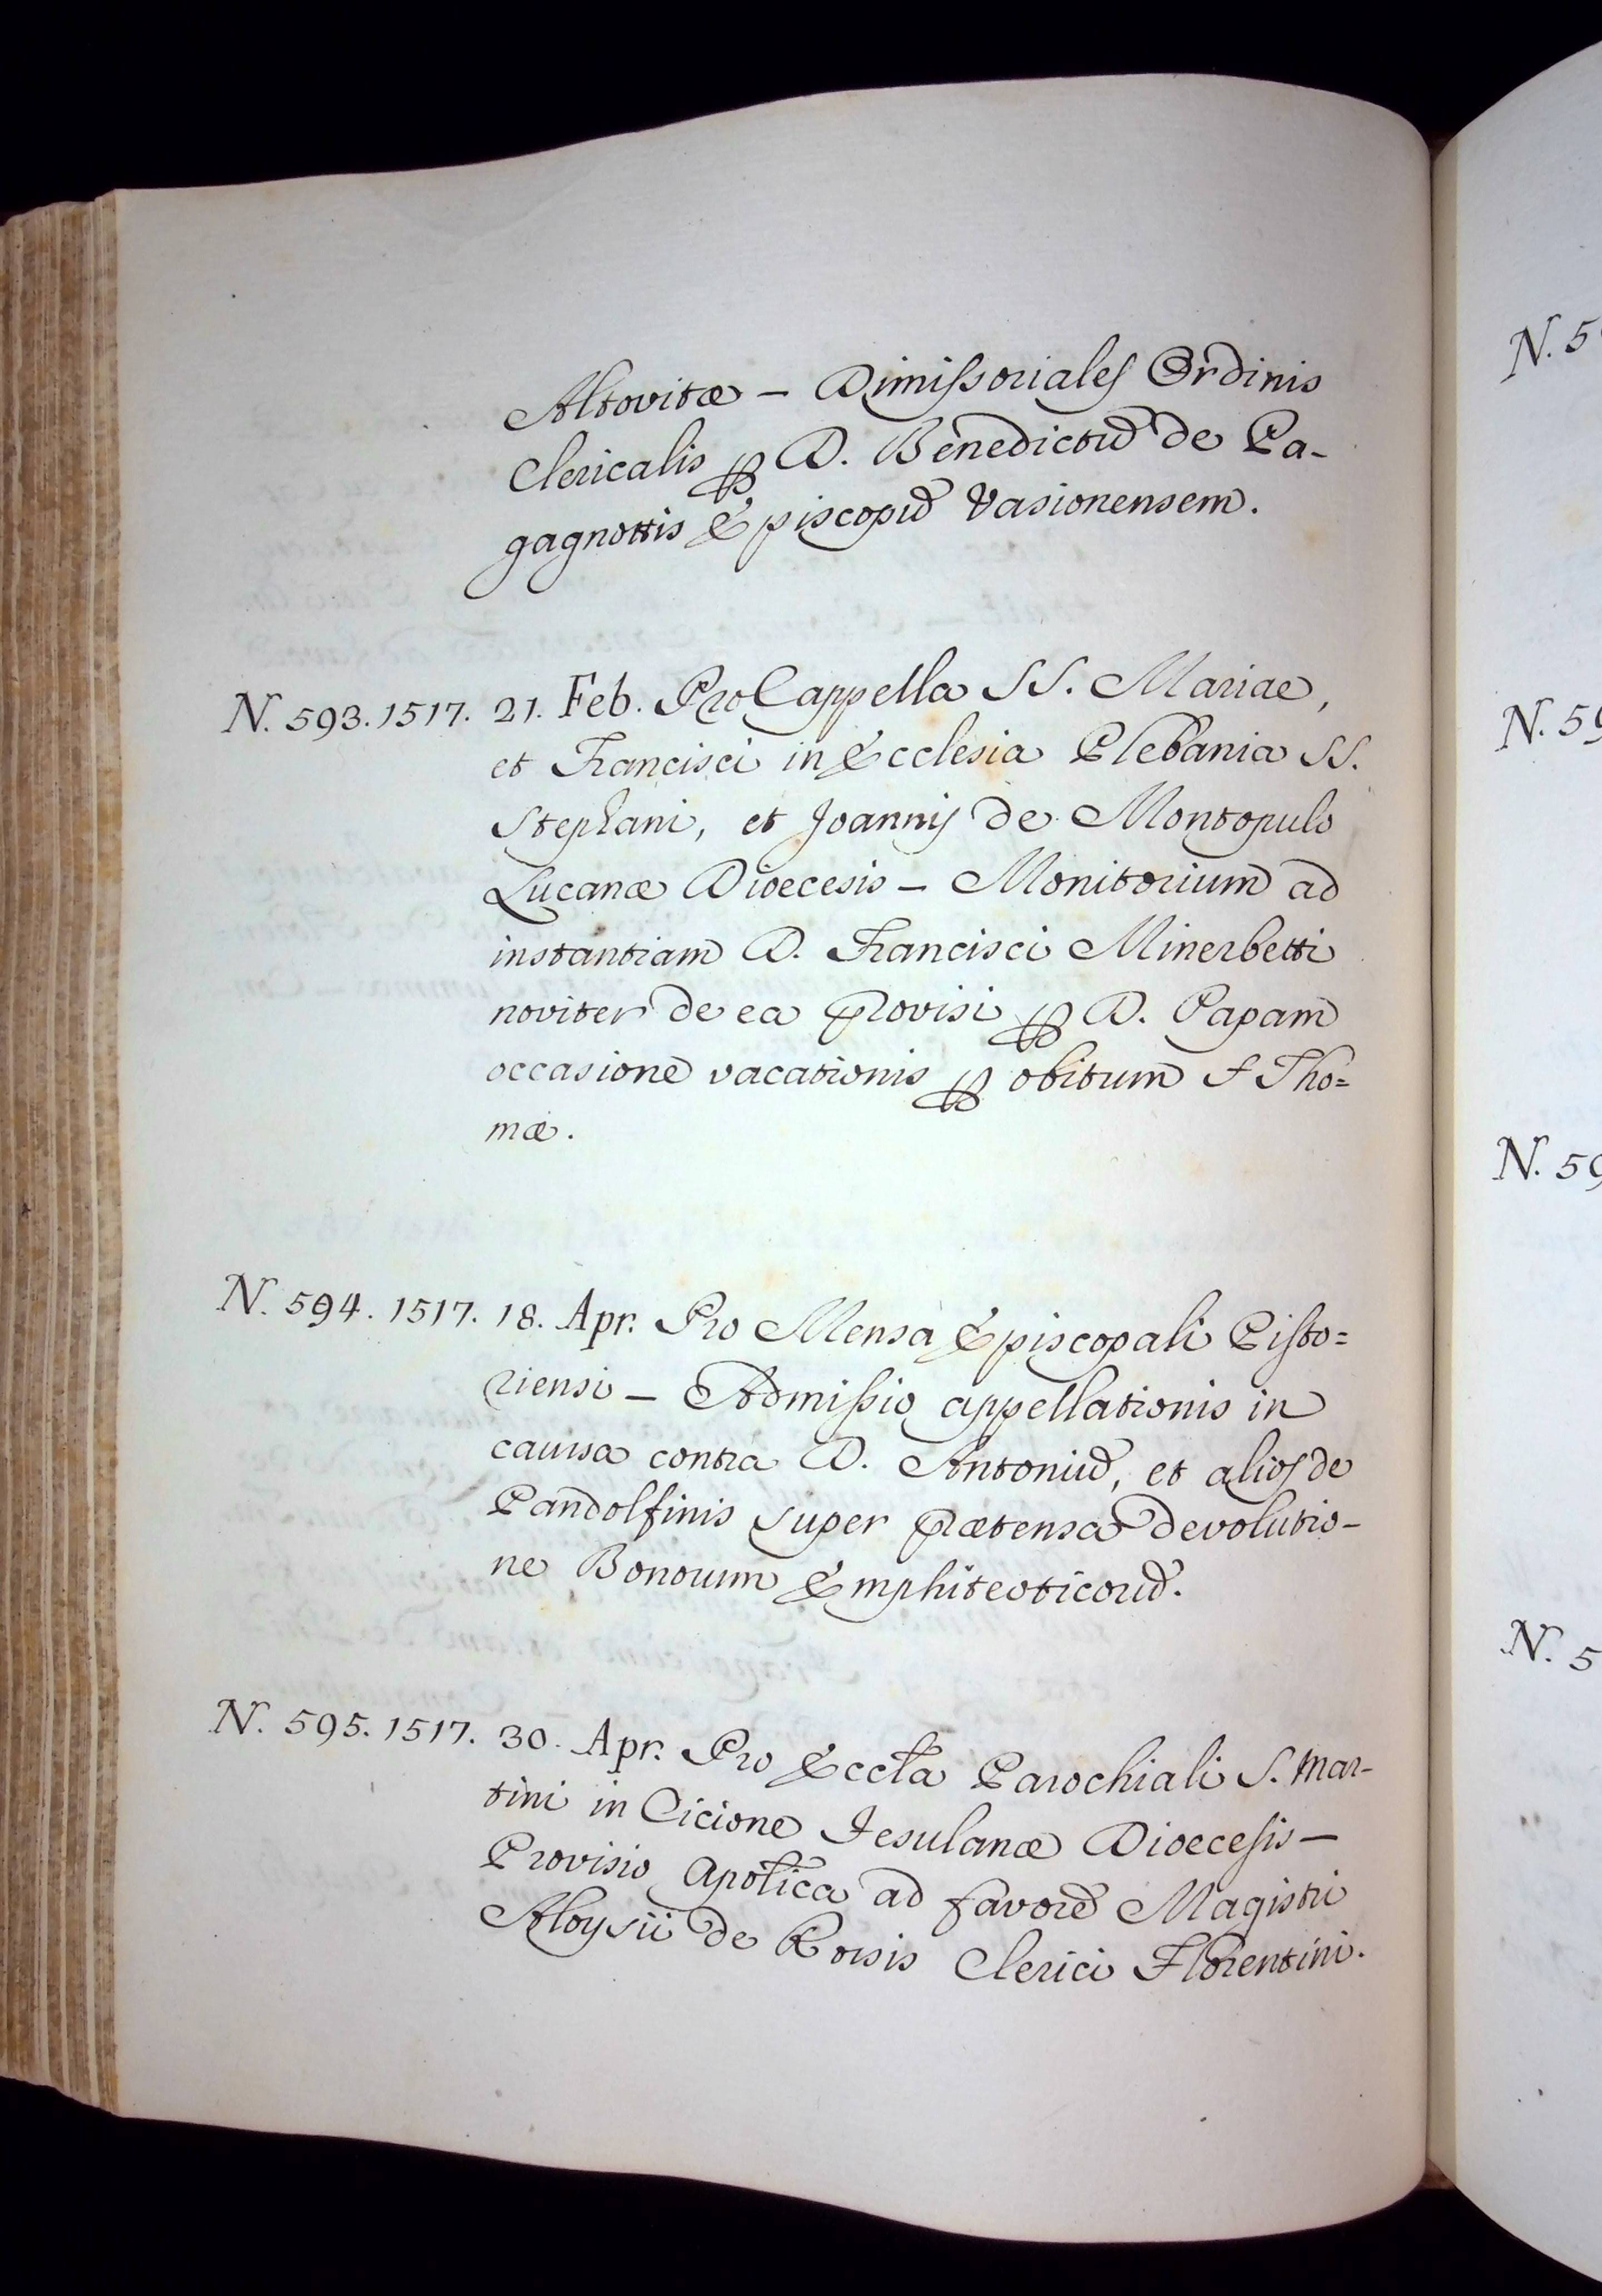 Altovitæ – Dimissoriales Ordinis
Clericalis ꝑ D. Benedictū de Pa-
gagnottis Episcopū Vasionensem.
N. 593. 1517. 21. Feb. Pro Cappella SS. Mariae,
et Francisci in Ecclesia Plebania SS.
Stephani, et Joannis de Montopulo
Lucanæ Dioecesis – Monitorium ad
instantiam D. Francisci Minerbetti
noviter de ea provisi ꝑ D. Papam
occasione vacationis ꝑ obitum S Tho=
mæ.
N. 594. 1517. 18. Apr. Pro Mensa Episcopali Pisto=
riensi – Admissio appellationis in
causa contra D. Antoniū, et alios de
Pandolfinis super prætensa devolutio-
ne Bonorum Emphiteoticorū.
N. 595. 1517. 30. Apr. Pro Eccla Parochiali S. Mar-
tini in Cicione Fesulanæ Dioecesis –
Provisio Aplica ad favorē Magistri
Aloysii de Rosis Clerici Florentini.
N. 5
N. 59
N. 59
N. 5